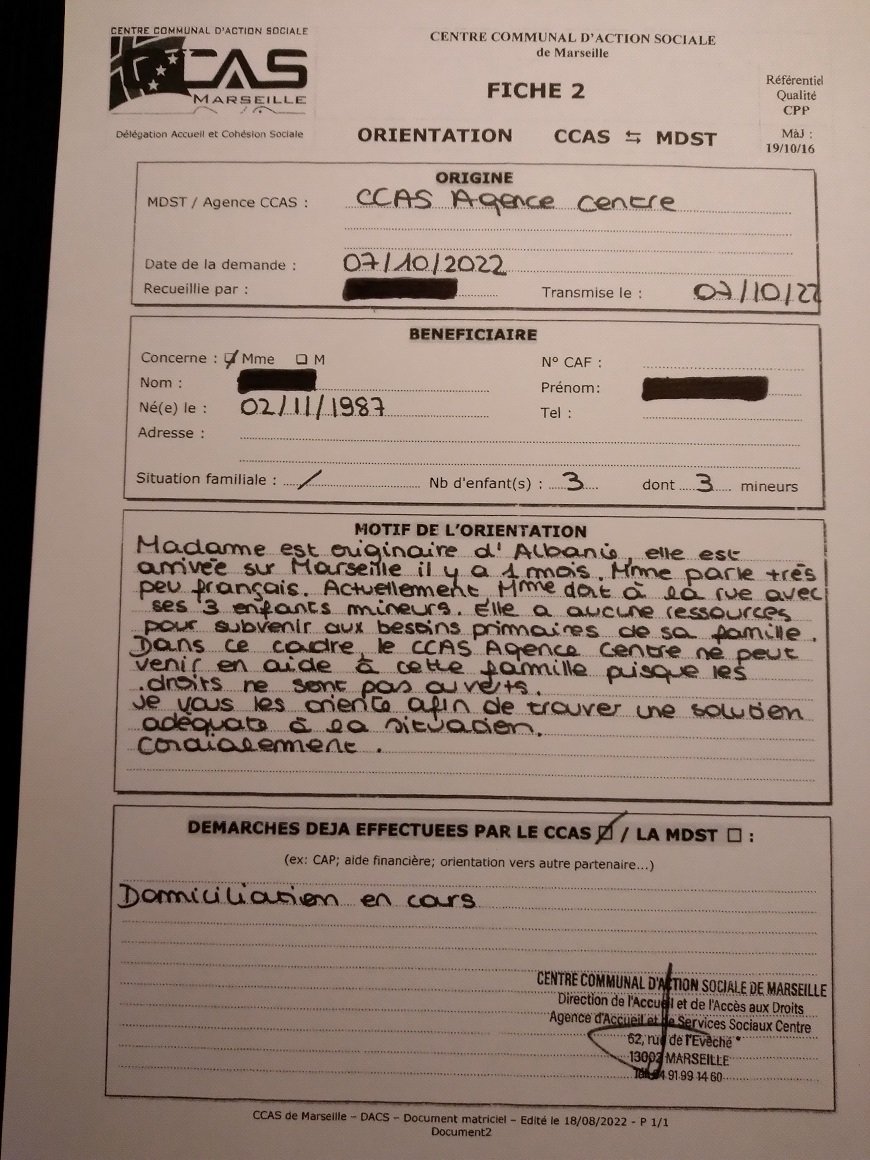 CENTRE COMMUNAL D'ACTION SOCIALE
CCAS
MARSEILLE
Délégation Accueil et Cohésion Sociale
CENTRE COMMUNAL D'ACTION SOCIALE
de Marseille
FICHE 2
ORIENTATION CCAS ⇆ MDST
Référentiel
Qualité
CPP
MàJ :
19/10/16
ORIGINE
MDST / Agence CCAS : CCAS Agence Centre
Date de la demande : 07/10/2022
Recueillie par : Transmise le : 07/10/22
BENEFICIAIRE
Concerne : ☑ Mme ☐ M N° CAF :
Nom : Prénom:
Né(e) le : 02/11/1987 Tel :
Adresse :
Situation familiale : / Nb d'enfant(s) : 3 dont 3 mineurs
MOTIF DE L'ORIENTATION
Madame est originaire d'Albanie, elle est
arrivée sur Marseille il y a 1 mois. Mme parle très
peu français. Actuellement, Mme dort à la rue avec
ses 3 enfants mineurs. Elle a aucune ressources
pour subvenir aux besoins primaires de sa famille.
Dans ce cadre, le CCAS Agence Centre ne peut
venir en aide à cette famille puisque les
droits ne sont pas ouverts.
Je vous les oriente afin de trouver une solution
adéquate à la situation.
Cordialement.
DEMARCHES DEJA EFFECTUEES PAR LE CCAS ☑ / LA MDST ☐ :
(ex: CAP; aide financière; orientation vers autre partenaire...)
Domiciliation en cours
CENTRE COMMUNAL D'ACTION SOCIALE DE MARSEILLE
Direction de l'Accueil et de l'Accès aux Droits
Agence d'Accueil et de Services Sociaux Centre
62, rue de l'Evêché
13002 MARSEILLE
91 99 14 60
CCAS de Marseille – DACS – Document matriciel – Edité le 18/08/2022 - P 1/1
Document2